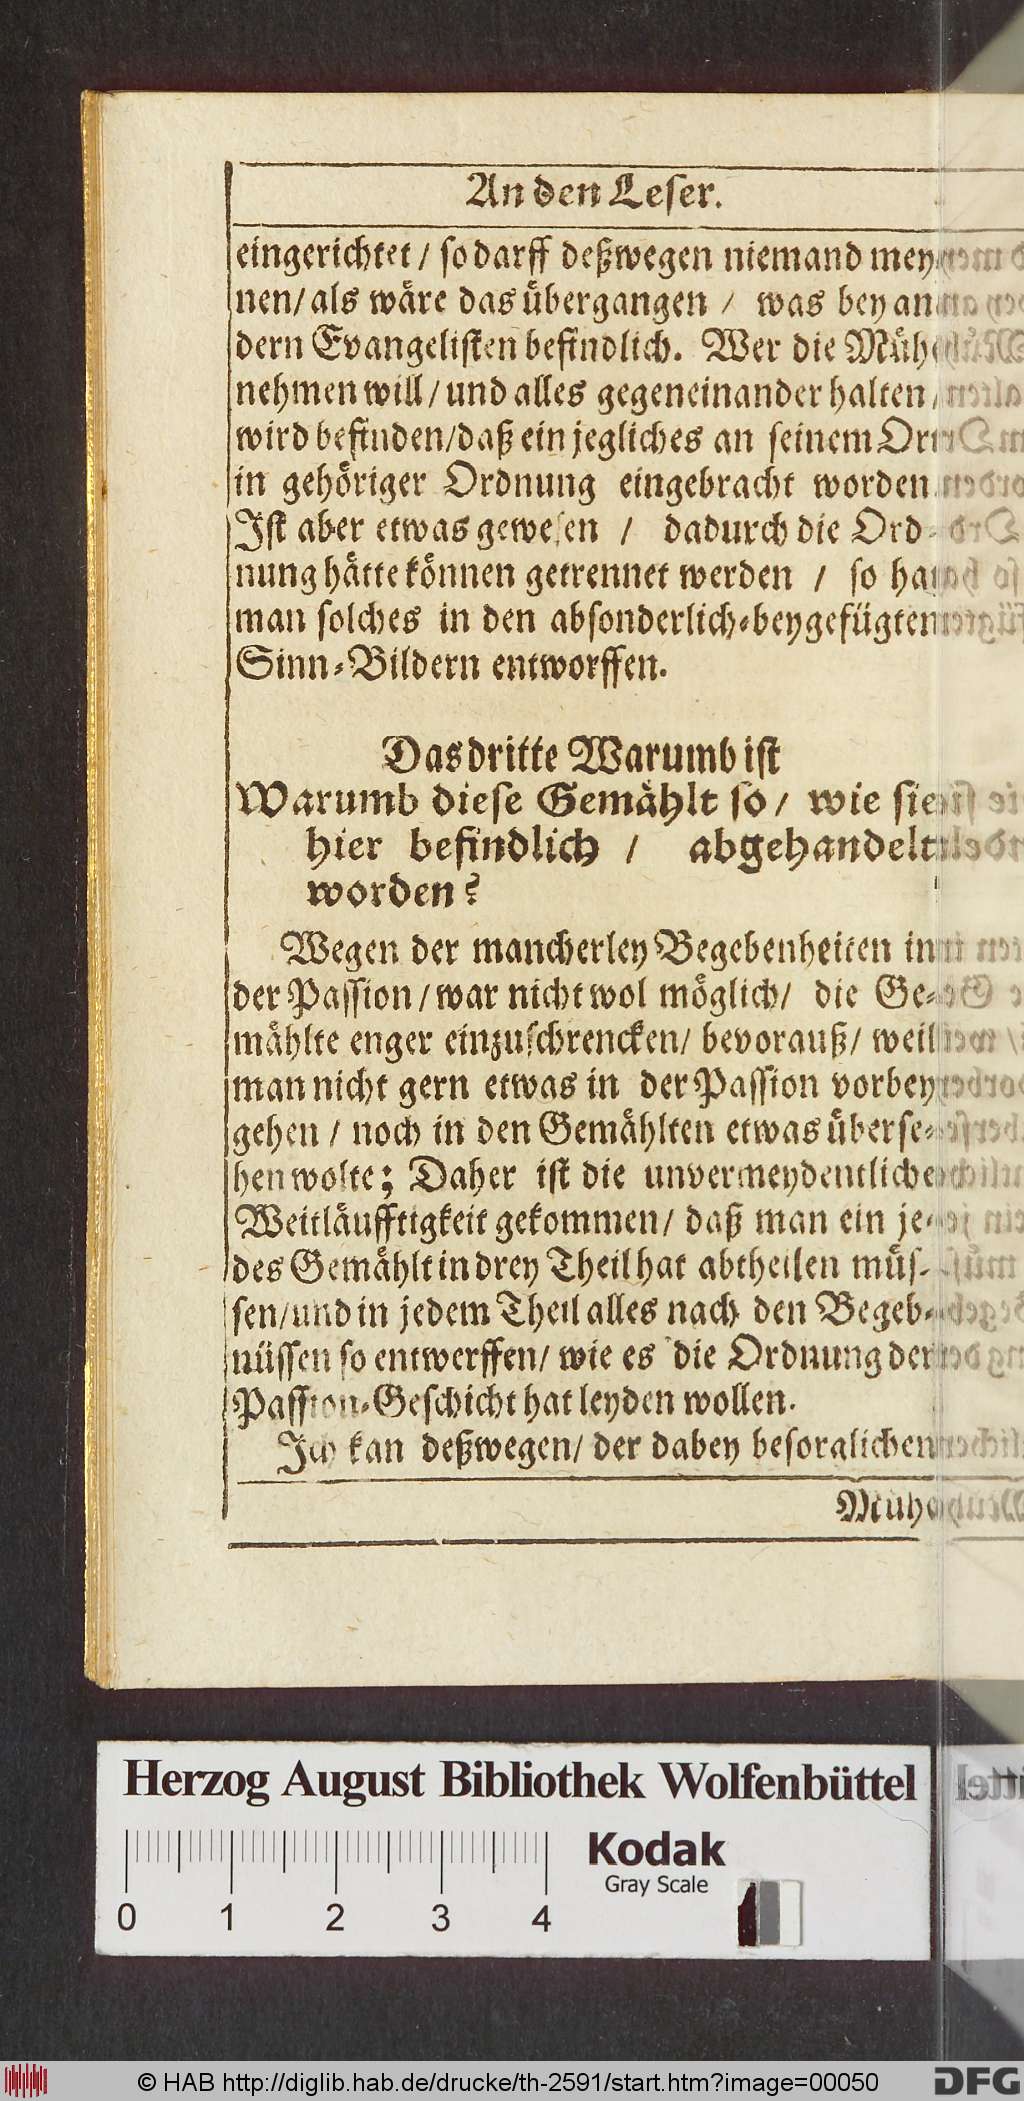 An den Leser.
eingerichtet / so darff deßwegen niemand mey-
nen/ als wäre das übergangen / was bey an-
dern Evangelisten befindlich. Wer die Müh
nehmen will / und alles gegeneinander halten /
wird befinden/ daß ein jegliches an seinem Ort
in gehöriger Ordnung eingebracht worden.
Ist aber etwas gewesen / dadurch die Ord-
nung hätte können getrennet werden / so hat
man solches in den absonderlich-beygefügten
Sinn-Bildern entworffen.
Das dritte Warumb ist
Warumb diese Gemählt so / wie sie
hier befindlich / abgehandelt
worden?
Wegen der mancherley Begebenheiten in
der Passion / war nicht wol möglich / die Ge-
mählte enger einzuschrencken / bevorauß / weil
man nicht gern etwas in der Passion vorbey
gehen / noch in den Gemählten etwas überse-
hen wolte; Daher ist die unvermeydentliche
Weitläufftigkeit gekommen / daß man ein je-
des Gemählt in drey Theil hat abtheilen müs-
sen / und in jedem Theil alles nach den Begeb-
nüssen so entwerffen / wie es die Ordnung der
Passion-Geschicht hat leyden wollen.
Ich kan deßwegen / der dabey besorglichen
Müh
Herzog August Bibliothek Wolfenbüttel
Kodak
Gray Scale
0 1 2 3 4
© HAB http://diglib.hab.de/drucke/th-2591/start.htm?image=00050
DFG